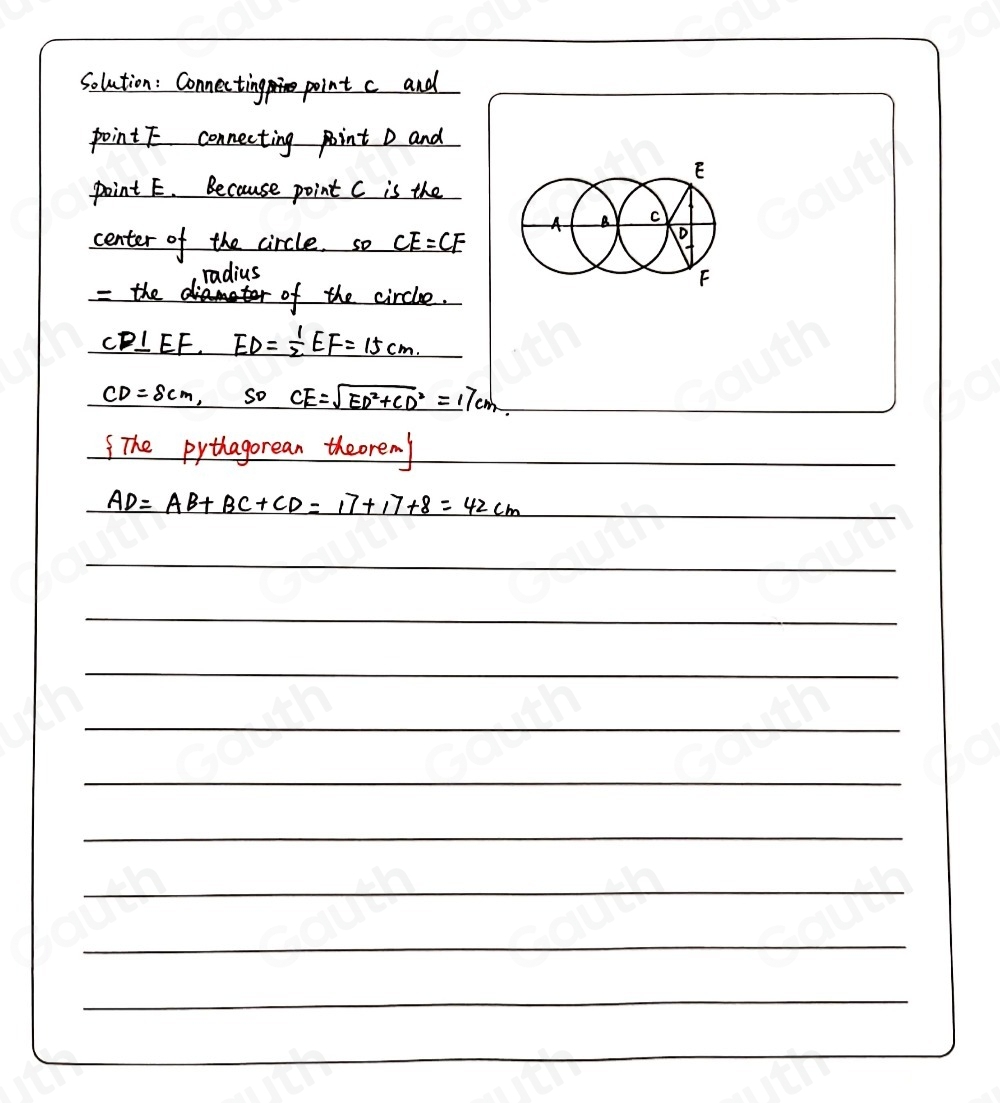 Solution: Connecting point C and
point F connecting point D and
point E. Because point C is the
center of the circle. so CE=CF
= the radius of the circle.
CD⊥EF. ED=1/2 EF=15cm.
CD=8cm, so CE=√(ED²+CD²) =17cm.
{The pythagorean theorem}
AD= AB+BC+CD= 17+17+8=42cm
E
A B C D
F
Gauth